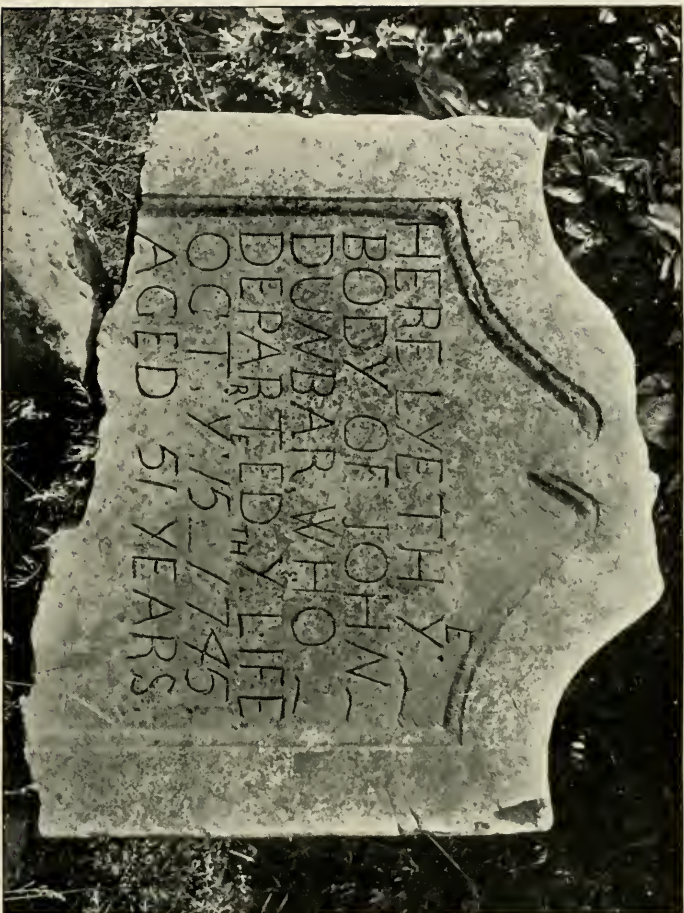 HERE LYETH Y.E
BODY OF JOHN
DUNBAR WHO
DEPARTED Y.S LIFE
OCTR Y.E 15TH 1745
AGED 51 YEARS